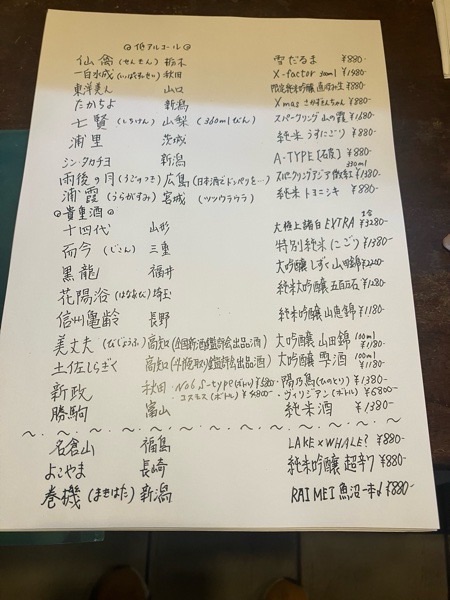 ◎低アルコール◎
仙禽(せんきん) 栃木 雪だるま ¥880-
一白水成(いっぱくすいせい) 秋田 X-factor ¥1480-
東洋美人 山口 限定純米吟醸 直汲み生 ¥880-
たかちよ 新潟 Xmas さかすきんちゃん ¥880-
七賢(しちけん) 山梨(360mlびん) スパークリング 山の霞 ¥1680-
浦里 茨城 純米 うすにごり ¥880-
シン・タカチヨ 新潟 A-TYPE [石度] ¥880-
雨後の月(うごのつき) 広島(日本酒でドンペリを〜) スパークリング
浦霞(うらがすみ) 宮城(ツツウラウラ) 純米 トヨニシキ ¥880-
◎貴重酒◎
十四代 山形 大極上諸白 EXTRA ¥3280-
而今(じこん) 三重 特別純米 にごり ¥1380-
黒龍 福井 大吟醸 しずく 山田錦 ¥2200-
花陽浴(はなあび) 埼玉 純米大吟醸 五百万石 ¥1280-
信州亀齢 長野 純米吟醸 山恵錦 ¥1180-
美丈夫(びじょうふ) 高知(全国新酒鑑評会出品酒) 大吟醸 山田錦 100ml ¥1180-
土佐しらぎく 高知(斗瓶取り鑑評会出品酒) 大吟醸 雫酒 100ml ¥1180-
新政 秋田 ・No6 S-type(ボトル) ・陽乃鳥(ひのとり) ¥1380-
・コスモス(ボトル) ¥4800- ・ヴィリジアン(ボトル) ¥6800-
勝駒 富山 純米酒 ¥1380-
名倉山 福島 LAKE×WHALE? ¥880-
よこやま 長崎 純米吟醸 超辛7 ¥880-
巻機(まきはた) 新潟 RAIMEI 魚沼一本〆 ¥880-